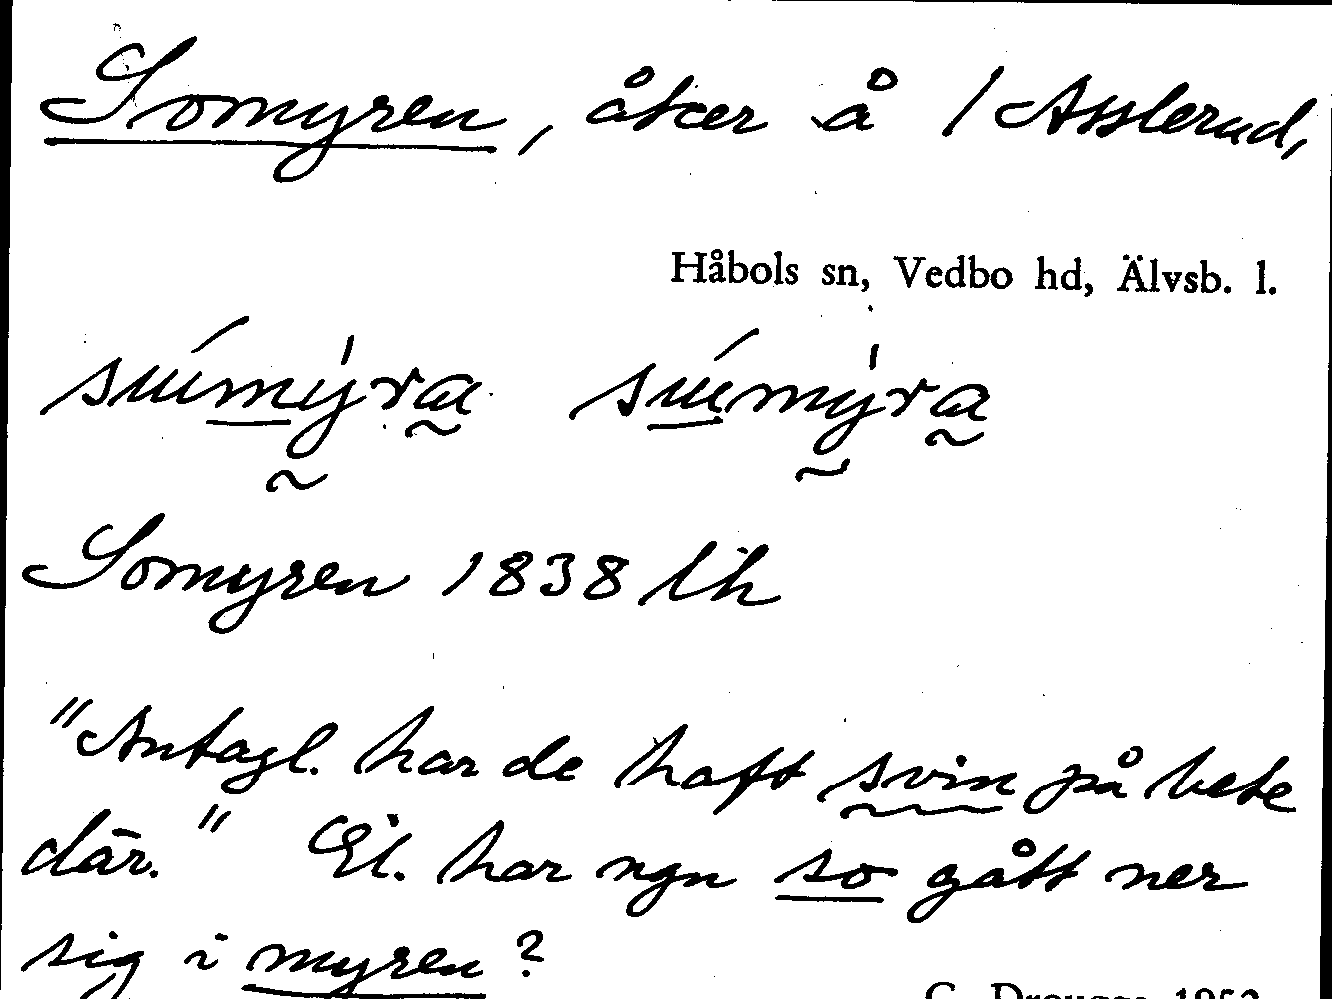 Somyren, åker å 1 Asslerud,
Håbols sn, Vedbo hd, Älvsb. l.
súmýra súmýra
Somyren 1838 lh
"Antagl. har de haft svin på bete
där." El. har ngn so gått ner
sig i myren?